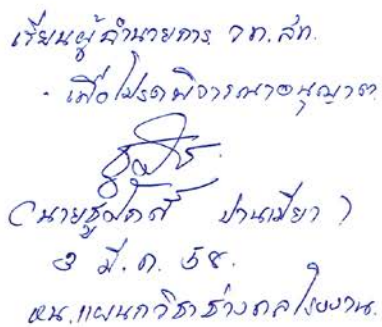 เรียนผู้อำนวยการ วท.สท.
- เพื่อโปรดพิจารณาอนุญาต
(นายชูศักดิ์ ปานเมียา)
3 มี.ค. 58.
หน.แผนกวิชาช่างกลโรงงาน.